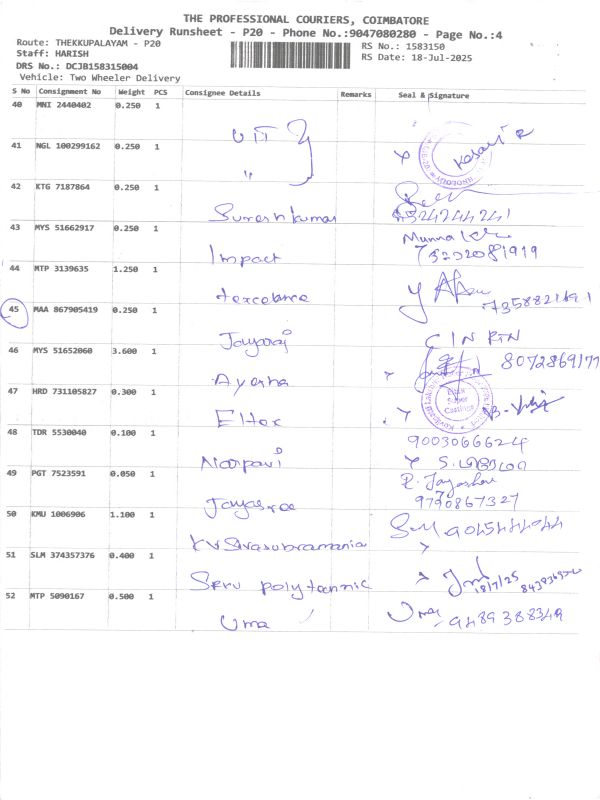 THE PROFESSIONAL COURIERS, COIMBATORE
Delivery Runsheet - P20 - Phone No.:9047080280 - Page No.:4
Route: THEKKUPALAYAM - P20
Staff: HARISH
DRS No.: DCJB158315004
Vehicle: Two Wheeler Delivery
RS No.: 1583150
RS Date: 18-Jul-2025
S No Consignment No Weight PCS Consignee Details Remarks Seal & Signature
40 MNI 2440402 0.250 1
41 NGL 100299162 0.250 1 "
42 KTG 7187864 0.250 1 Sureshkumar
43 MYS 51662917 0.250 1 Impact
44 MTP 3139635 1.250 1
45 MAA 867905419 0.250 1 Jayaraj
46 MYS 51652060 3.600 1 8072869177
47 HRD 731105827 0.300 1 Eltex
48 TDR 5530040 0.100 1 9003066624
49 PGT 7523591 0.050 1 Jayasree R. Jayashree
9790867327
50 KMU 1006906 1.100 1 KV Sivasubramania
51 SLM 374357376 0.400 1 18/7/25
52 MTP 5090167 0.500 1 Uma Uma 9489388349